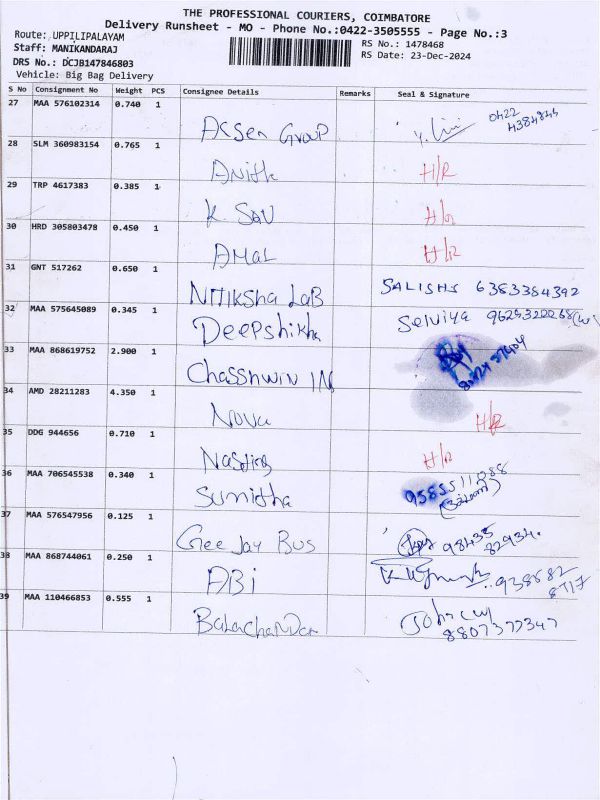 THE PROFESSIONAL COURIERS, COIMBATORE
Delivery Runsheet - MO - Phone No.:0422-3505555 - Page No.:3
Route: UPPILIPALAYAM
RS No.: 1478468
Staff: MANIKANDARAJ
RS Date: 23-Dec-2024
DRS No.: DCJB147846803
Vehicle: Big Bag Delivery
S No Consignment No Weight PCS Consignee Details Remarks Seal & Signature
27 MAA 576102314 0.740 1
0422
4384844
Group
28 SLM 360983154 0.765 1
Anith H/R
29 TRP 4617383 0.385 1
K. Sav H/R
30 HRD 305803478 0.450 1
AMAL H/R
31 GNT 517262 0.650 1
Nitiksha Lab SALISHS 6383384392
32 MAA 575645089 0.345 1
Deepshikha Selviya
33 MAA 868619752 2.900 1
Chasshwin IN
34 AMD 28211283 4.350 1
Nova H/R
35 DDG 944656 0.710 1
H/R
36 MAA 706545538 0.340 1
Sumitha
37 MAA 576547956 0.125 1
Gee Jay Bus 98435
82934
38 MAA 868744061 0.250 1
ABi
39 MAA 110466853 0.555 1
Balachandar
8807377347